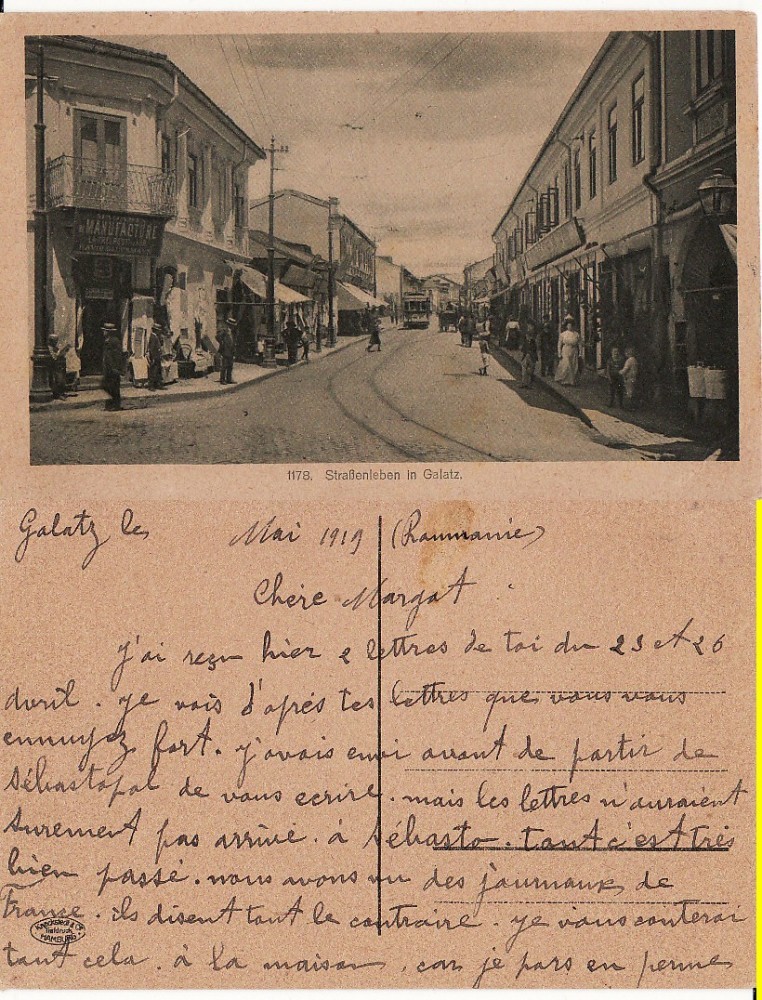 MANUFACTURE
1178. Straßenleben in Galatz.
Galatz le Mai 1919 (Roumanie)
Chère Margot
J'ai reçu hier 2 lettres de toi du 23 et 26
avril. je vois d'après tes lettres que vous vous
ennuyez fort. j'avais envi avant de partir de
Sébastopol de vous ecrire. mais les lettres n'auraient
surement pas arrivé. à Sébasto. tant c'est très
bien passé. nous avons vu des journaux de
France. ils disent tout le contraire je vous conterai
tout cela. à la maison, car je pars en perme
Knackstedt & Co.
Lichtdruck
HAMBURG